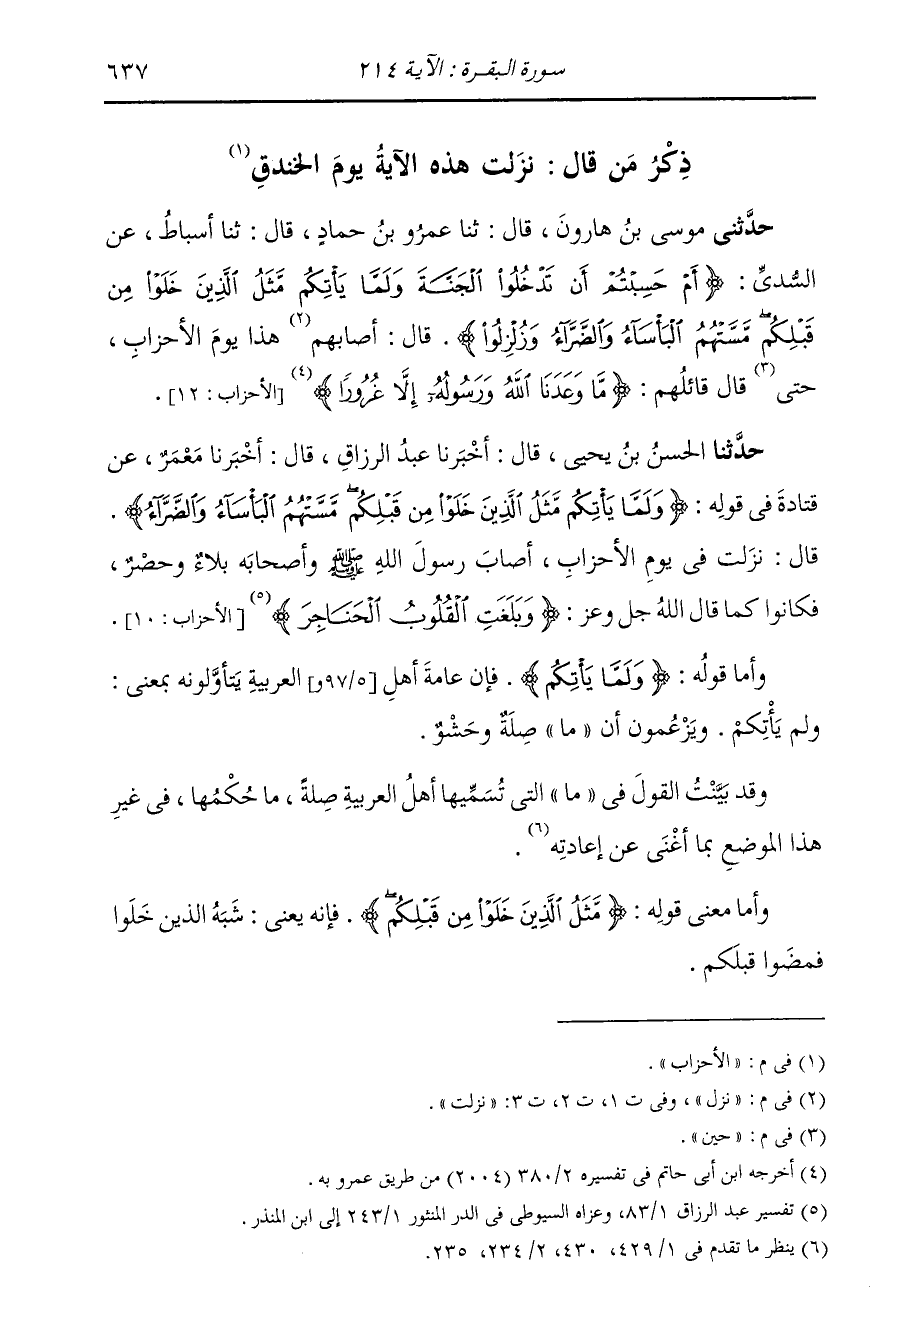 سورة البقرة : الآية ٢١٤ ٦٣٧
ذِكْرُ مَن قال : نزَلت هذه الآيةُ يومَ الخندقِ(١)
حدَّثنى موسى بنُ هارونَ ، قال : ثنا عمرُو بنُ حمادٍ ، قال : ثنا أسباطُ ، عن
السُّدىِّ : ﴿ أَمْ حَسِبْتُمْ أَن تَدْخُلُواْ ٱلْجَنَّةَ وَلَمَّا يَأْتِكُم مَّثَلُ ٱلَّذِينَ خَلَوْاْ مِن
قَبْلِكُمۖ مَّسَّتْهُمُ ٱلْبَأْسَآءُ وَٱلضَّرَّآءُ وَزُلْزِلُواْ ﴾ . قال : أصابهم(٢) هذا يومَ الأحزابِ ،
حتى(٣) قال قائلُهم : ﴿ مَّا وَعَدَنَا ٱللَّهُ وَرَسُولُهُۥٓ إِلَّا غُرُورًا ﴾(٤) [الأحزاب : ١٢] .
حدَّثنا الحسنُ بنُ يحيى ، قال : أخْبَرنا عبدُ الرزاقِ ، قال : أخْبَرنا مَعْمَرٌ ، عن
قتادةَ فى قولِه : ﴿ وَلَمَّا يَأْتِكُم مَّثَلُ ٱلَّذِينَ خَلَوْاْ مِن قَبْلِكُمۖ مَّسَّتْهُمُ ٱلْبَأْسَآءُ وَٱلضَّرَّآءُ﴾ .
قال : نزَلت فى يومِ الأحزابِ ، أصابَ رسولَ اللهِ ﷺ وأصحابَه بلاءٌ وحصْرٌ ،
فكانوا كما قال اللهُ جل وعز : ﴿ وَبَلَغَتِ ٱلْقُلُوبُ ٱلْحَنَاجِرَ ﴾(٥) [ الأحزاب : ١٠] .
وأما قولُه : ﴿ وَلَمَّا يَأْتِكُم ﴾ . فإن عامةَ أهلِ [٩٧/٥و] العربيةِ يَتأوَّلونه بمعنى :
ولم يَأْتِكمْ . ويَزْعُمون أن « ما » صِلَةٌ وحَشْوٌ .
وقد بَيَّنْتُ القولَ فى « ما » التى تُسَمِّيها أهلُ العربيةِ صِلةً ، ما حُكْمُها ، فى غيرِ
هذا الموضعِ بما أغْنَى عن إعادتِه(٦) .
وأما معنى قولِه : ﴿ مَّثَلُ ٱلَّذِينَ خَلَوْاْ مِن قَبْلِكُمۖ ﴾ . فإنه يعنى : شَبَهُ الذين خَلَوا
فمضَوا قبلَكم .
(١) فى م : « الأحزاب » .
(٢) فى م : « نزل » ، وفى ت ١، ت ٢، ت ٣: « نزلت » .
(٣) فى م : « حين» .
(٤) أخرجه ابن أبى حاتم فى تفسيره ٣٨٠/٢ (٢٠٠٤) من طريق عمرو به .
(٥) تفسير عبد الرزاق ٨٣/١، وعزاه السيوطى فى الدر المنثور ٢٤٣/١ إلى ابن المنذر .
(٦) ينظر ما تقدم فى ١/ ٤٢٩، ٤٣٠، ٢/ ٢٣٤، ٢٣٥.